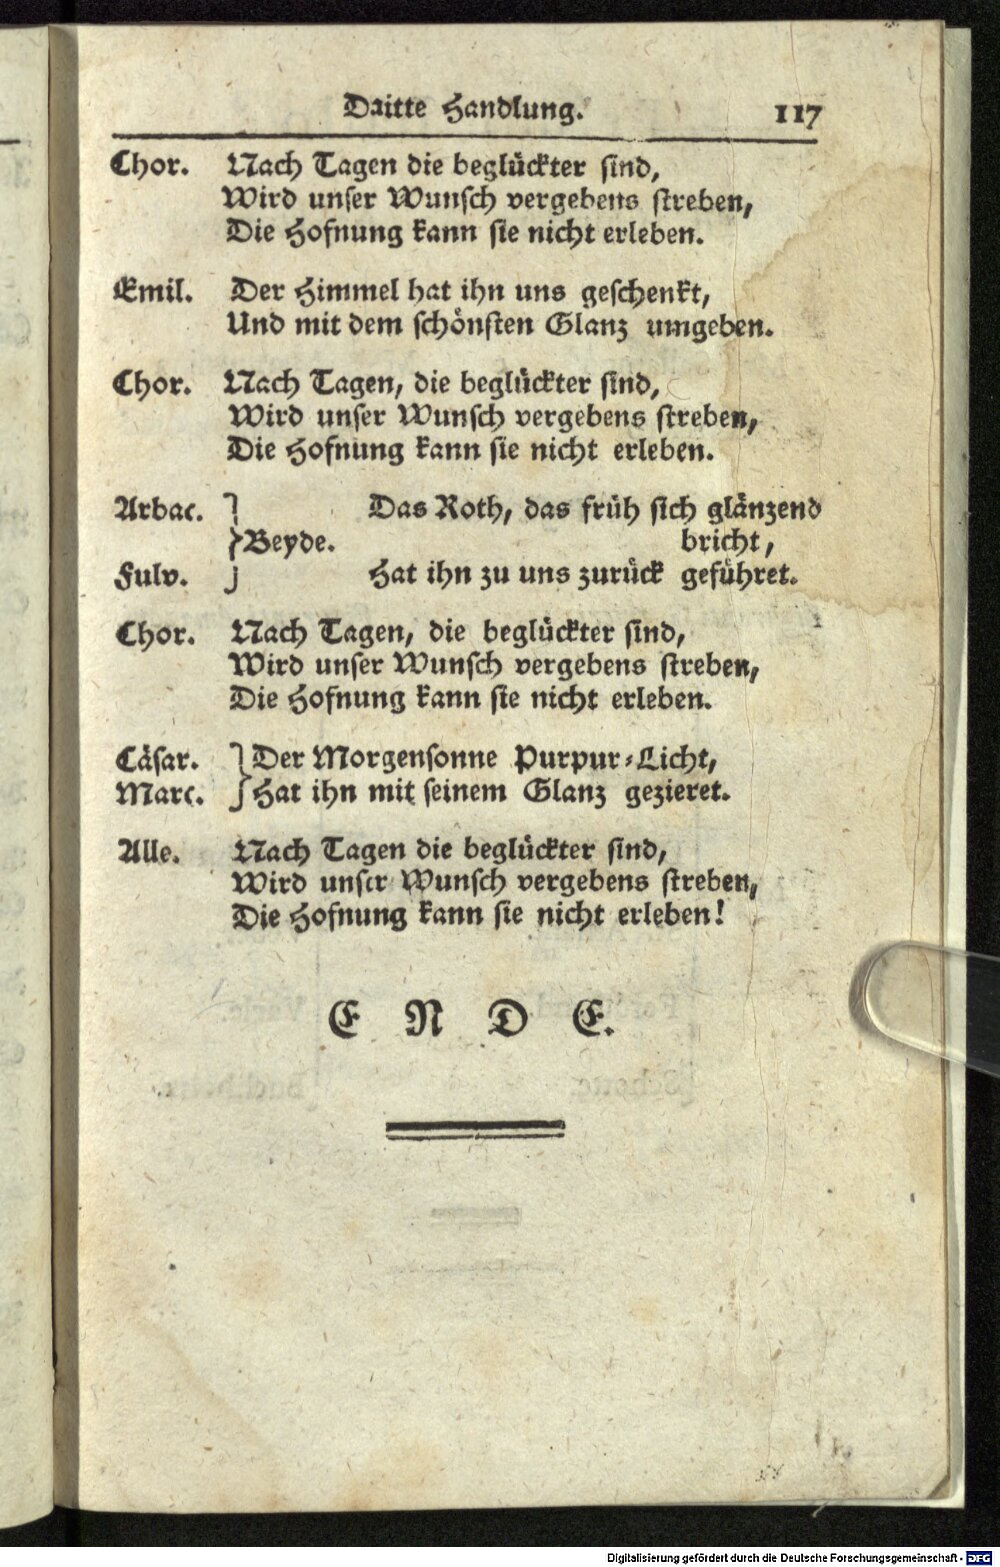 Dritte Handlung. 117
Chor. Nach Tagen die beglückter sind,
Wird unser Wunsch vergebens streben,
Die Hofnung kann sie nicht erleben.
Emil. Der Himmel hat ihn uns geschenkt,
Und mit dem schönsten Glanz umgeben.
Chor. Nach Tagen, die beglückter sind,
Wird unser Wunsch vergebens streben,
Die Hofnung kann sie nicht erleben.
Arbac. } Das Roth, das früh sich glänzend
Beyde. bricht,
Fulv. Hat ihn zu uns zurück geführet.
Chor. Nach Tagen, die beglückter sind,
Wird unser Wunsch vergebens streben,
Die Hofnung kann sie nicht erleben.
Cäsar. } Der Morgensonne Purpur-Licht,
Marc. Hat ihn mit seinem Glanz gezieret.
Alle. Nach Tagen die beglückter sind,
Wird unser Wunsch vergebens streben,
Die Hofnung kann sie nicht erleben!
E N D E.
Digitalisierung gefördert durch die Deutsche Forschungsgemeinschaft - DFG